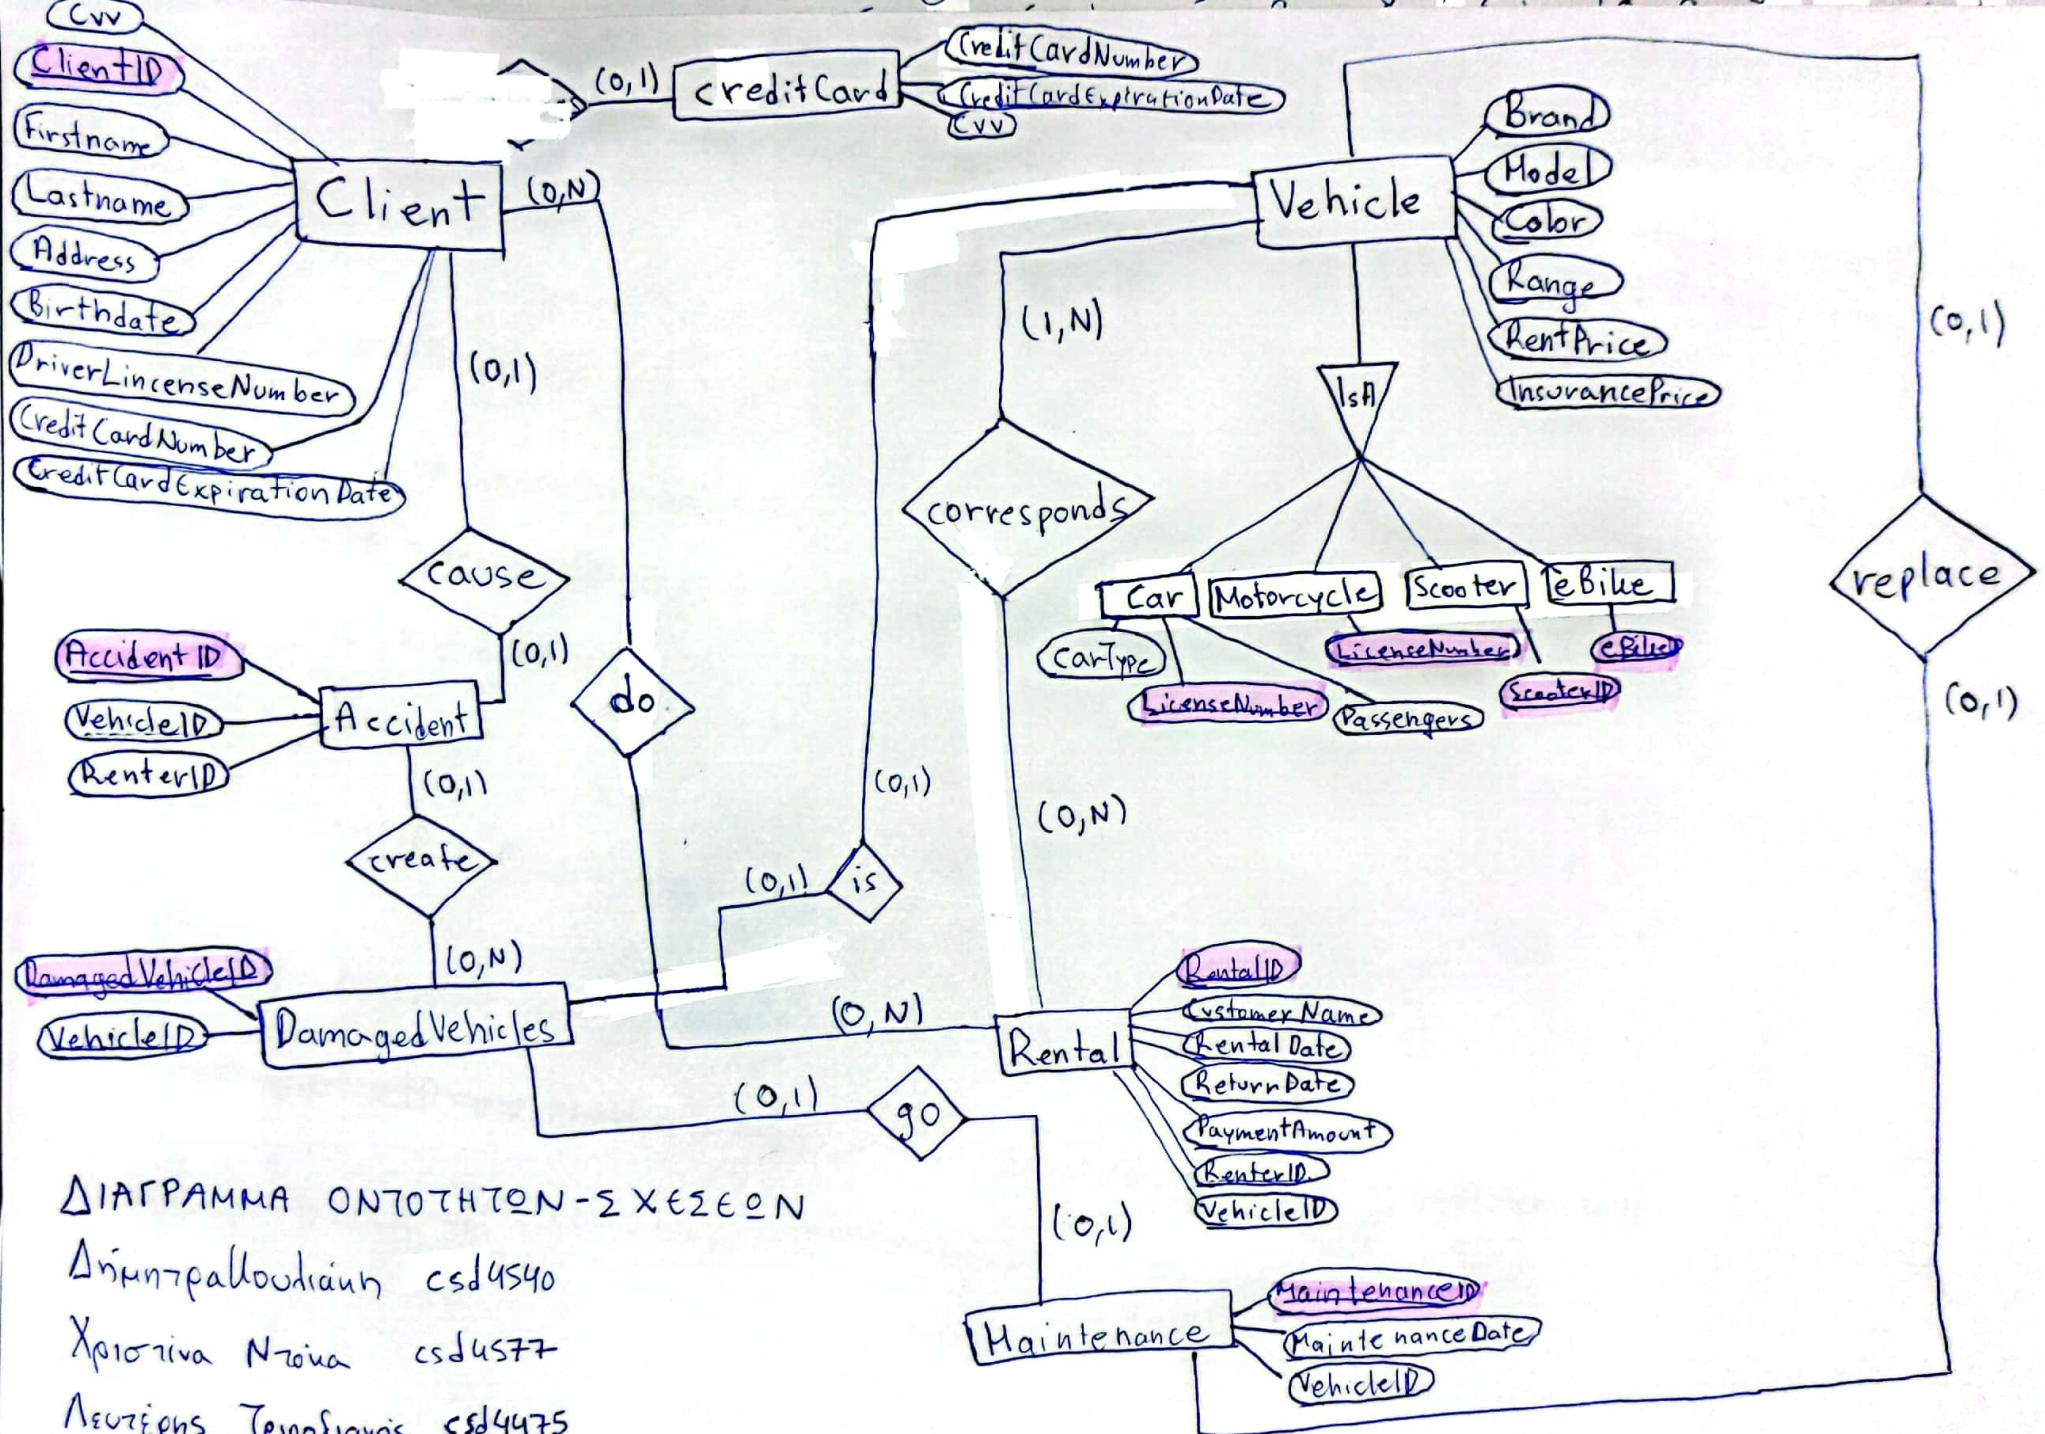 Cvv
ClientID
Firstname
Lastname
Address
Birthdate
DriverLincenseNumber
CreditCardNumber
CreditCardExpirationDate
Client
(0,N)
(0,1)
creditCard
CreditCardNumber
CreditCardExpirationDate
Cvv
Vehicle
Brand
Model
Color
Range
RentPrice
InsurancePrice
(0,1)
(1,N)
IsA
(0,1)
corresponds
cause
Car
Motorcycle
Scooter
eBike
replace
CarType
LicenseNumber
Passengers
LicenceNumber
ScooterID
(0,1)
(0,1)
Accident ID
VehicleID
RenterID
Accident
do
(0,1)
(0,1)
(0,N)
create
(0,1)
is
(0,N)
DamagedVehicleID
VehicleID
DamagedVehicles
(0,N)
Rental
RentalID
Customer Name
Rental Date
ReturnDate
PaymentAmount
RenterID
VehicleID
(0,1)
go
(0,1)
Maintenance
MaintenanceID
MaintenanceDate
VehicleID
ΔΙΑΓΡΑΜΜΑ ΟΝΤΟΤΗΤΩΝ-ΣΧΕΣΕΩΝ
Δήμητρα csd4540
Χριστίνα Ντόκα csd4577
Λευτέρης csd4475